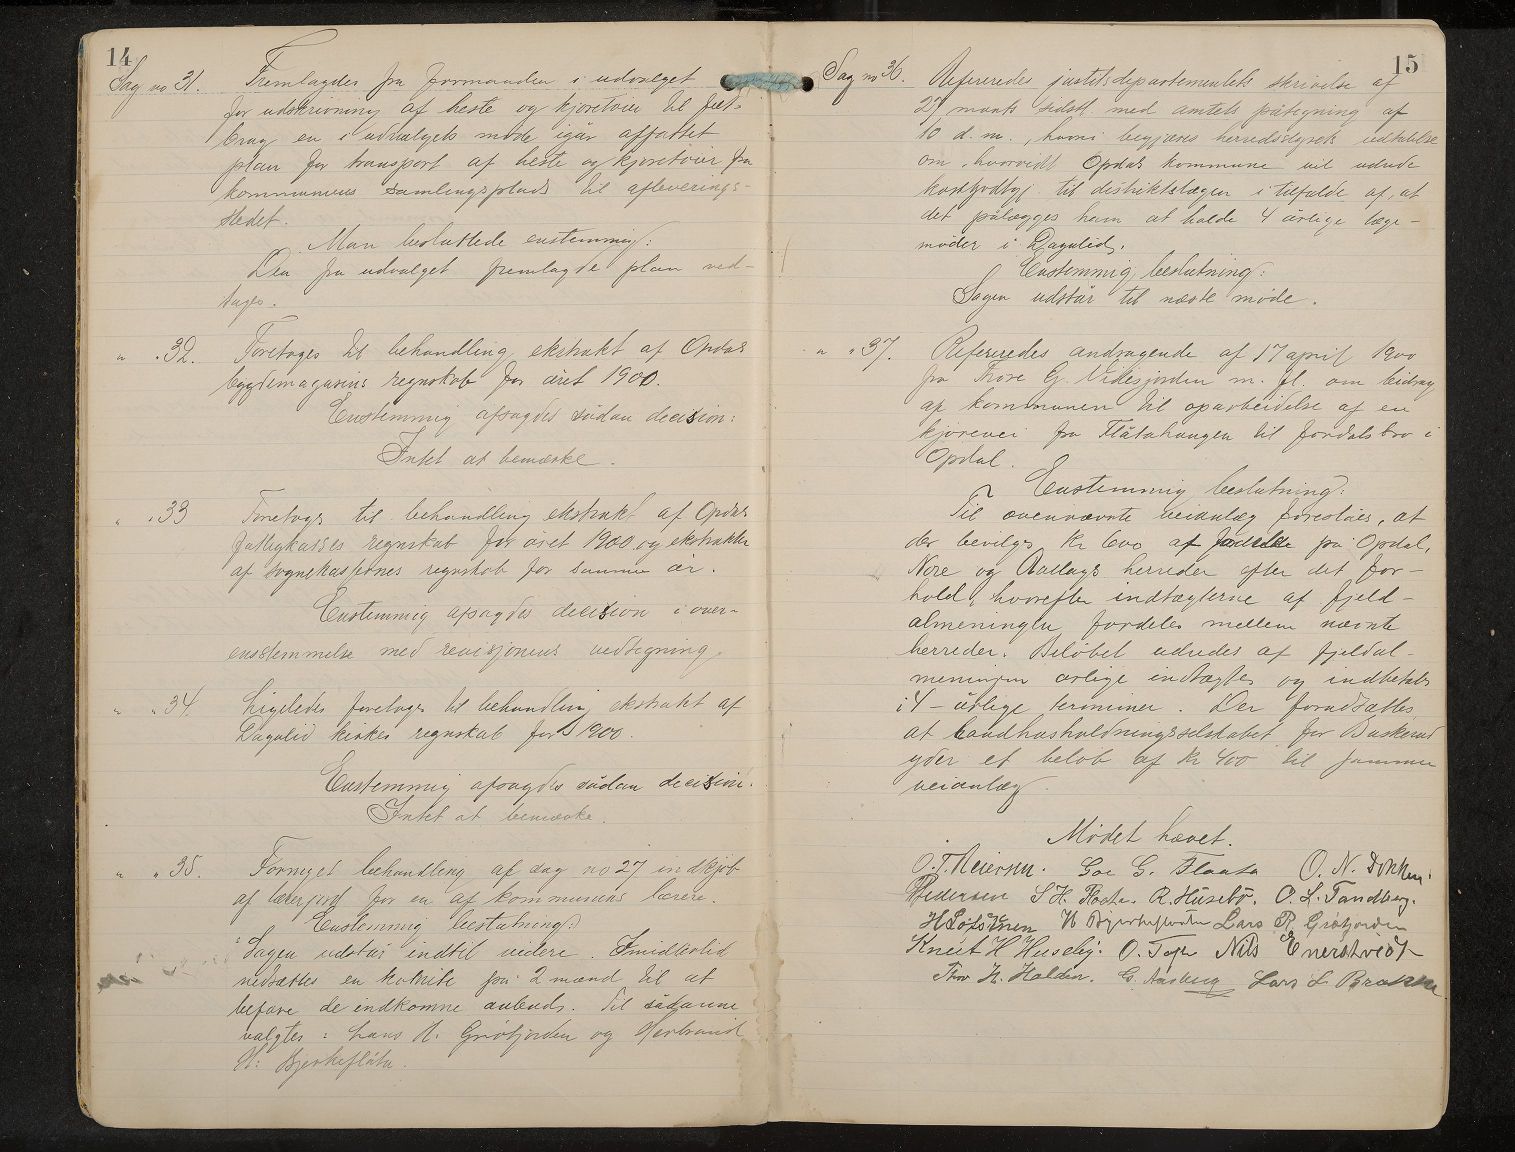 14
Sag no 31. Fremlagdes fra formanden i udvalget
for udskrivning af heste og kjøretøier til felt-
brug en i udvalgets møde igår affattet
plan for transport af heste og kjøretøier fra
kommunens samlingsplads til afleverings-
stedet.
Man besluttede enstemmig:
Den fra udvalget fremlagde plan ved-
tages.
" " 32. Foretoges til behandling ekstrakt af Opdals
bygdemagasins regnskab for året 1900.
Enstemmig afsagdes sådan decision:
Intet at bemærke.
" " 33 Foretoges til behandling ekstrakt af Opdals
fattigkasses regnskab for året 1900 og ekstrakter
af sognekassernes regnskab for samme år.
Enstemmig afsagdes decision i over-
ensstemmelse med revisjonens vedtegning.
" " 34. Ligeledes foretoges til behandling ekstrakt af
Dagalid kirkes regnskab for 1900.
Enstemmig afsagdes sådan decision:
Intet at bemærke.
" " 35. Fornyet behandling af sag no 27 indkjøb
af lærerjord for en af kommunens lærere.
Enstemmig beslutning:
Sagen udstår indtil videre. Imidlertid
nedsættes en komite på 2 mænd til at
befare de indkomne anbud. Til sådanne
valgtes: Lars R. Grøtjorden og Herbrand
H. Bjerkeflåta.
15
Sag no 36. Refereredes justitsdepartementets skrivelse af
27 marts sidstl. med amtets påtegning af
10 d. m., hvori begjæres herredsstyrets udtalelse
om, hvorvidt Opdals kommune vil udrede
kostgodtgj. til distriktslægen i tilfælde af, at
det pålægges ham at holde 4 årlige læge-
møder i Dagalid.
Enstemmig beslutning:
Sagen udstår til næste møde.
" " 37. Refereredes andragende af 17 april 1900
fra Tore G. Videsjorden m. fl. om bidrag
af kommunen til oparbeidelse af en
kjørevei fra Flåtahaugen til Jondalsbro i
Opdal.
Enstemmig beslutning:
Til ovennævnte veianlæg foreslåes, at
der bevilges kr 600 at fordele på Opdal,
Nore og Rollags herreder efter det for-
hold, hvorefter indtægterne af fjeld-
almeningen fordeles mellem nævnte
herreder. Beløbet udredes af fjeldal-
meningens årlige indtægter og indbetales
i 4 - årlige terminer. Der forudsættes
at Landhusholdningsselskabet for Buskerud
yder et beløb af kr 400 til samme
veianlæg.
Mødet hævet.
O. T. Reiersen. Goe G. Flaata O. N. Dokken.
Pedersen S H. Raaten R. Husebø. O. L. Tandberg.
H Løtstuen H Bjerkeflaata Lars R Grøtjorden
Kneut H Huseby. O. Toft Nils Enerstvedt
Thor H. Halden. G. Aasberg Lars L Braaten